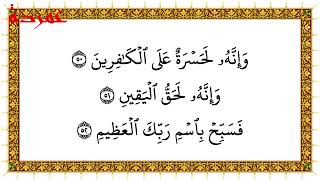 وَإِنَّهُۥ لَحَسْرَةٌ عَلَى ٱلْكَٰفِرِينَ ٥٠
وَإِنَّهُۥ لَحَقُّ ٱلْيَقِينِ ٥١
فَسَبِّحْ بِٱسْمِ رَبِّكَ ٱلْعَظِيمِ ٥٢